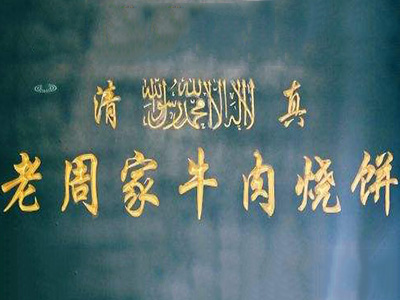 清 لا اله الا الله محمد رسول الله 真
老周家牛肉烧饼